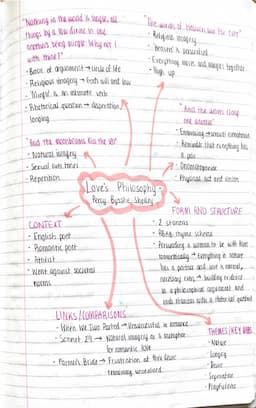 "Nothing in the world is single, all
things by a law divine in one
another's being mingle Why not I
with thine?"
• Basis of argument → circle of life
• Religious imagery → God's will and law
• 'Mingle' is an intimate verb
• Rhetorical question → desperation,
longing
"The winds of heaven mix for ever"
• Religious imagery
• 'heaven' is personified
• Everything moves and merges together
"And the waves clasp
one another"
• Reminder that everything has
a pair
• Onomatopoeia
• Physical act and union
"And the moonbeams kiss the sea"
• Natural imagery
• Sexual overtones
• Repetition
Love's Philosophy -
Percy Bysshe Shelley
CONTEXT
• English poet
• Romantic poet
• Atheist
• Went against societal
norms
FORM AND STRUCTURE
• 2 stanzas
• ABAB rhyme scheme
• Persuading a woman to be with him
romantically → everything in nature
has a partner and love is natural,
necessary → building evidence
in a philosophical argument and
ends stanzas with a rhetorical question
LINKS/COMPARISONS
• When We Two Parted → Unsuccessful in romance
• Sonnet 29 → Natural imagery as a metaphor
for romantic love
• Farmer's Bride → Frustration at their love
remaining unrealised
THEMES/KEY IDEAS
• Nature
• Longing
• Desire
• Separation
• Playfulness